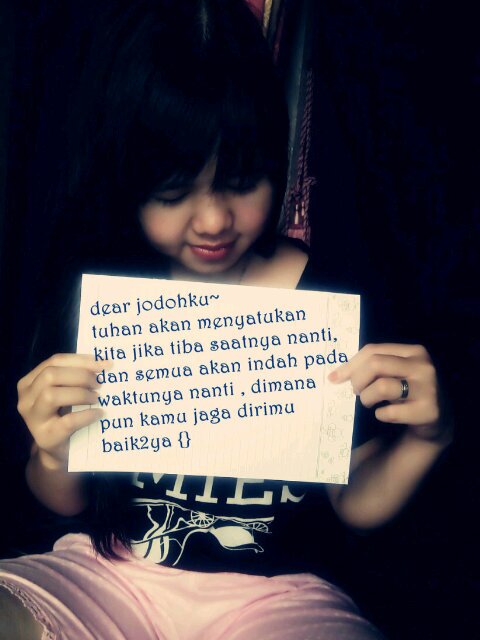 dear jodohku~
tuhan akan menyatukan
kita jika tiba saatnya nanti,
dan semua akan indah pada
waktunya nanti , dimana
pun kamu jaga dirimu
baik2ya {}